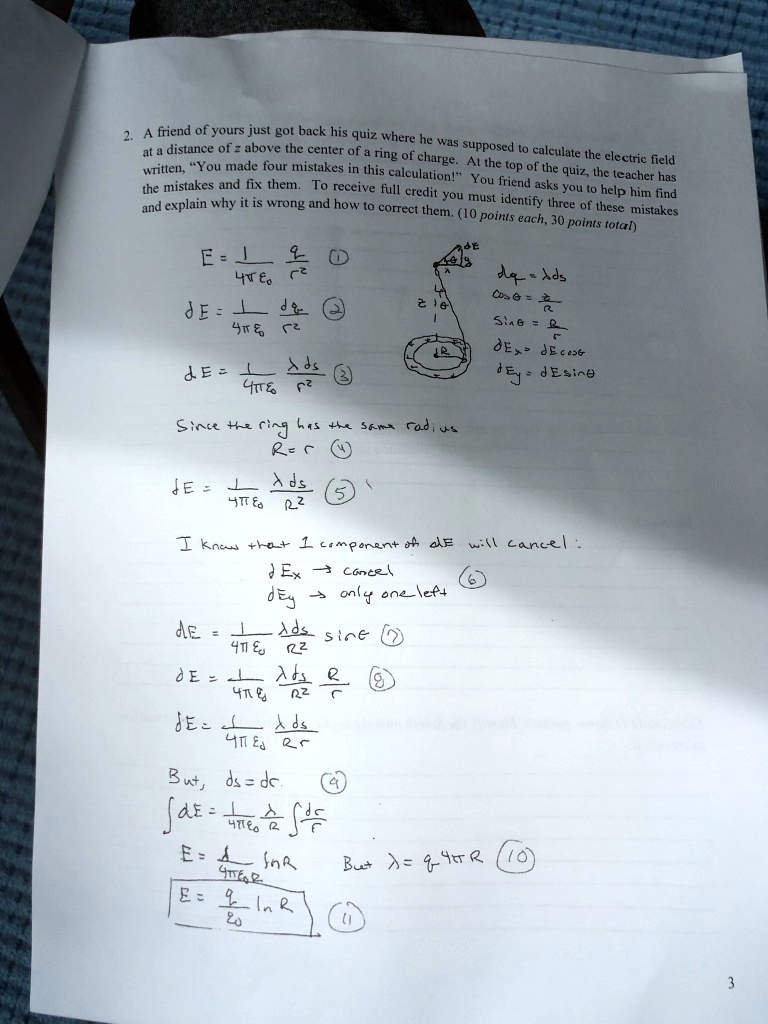 2. A friend of yours just got back his quiz where he was supposed to calculate the electric field
at a distance of z above the center of a ring of charge. At the top of the quiz, the teacher has
written, "You made four mistakes in this calculation!" You friend asks you to help him find
the mistakes and fix them. To receive full credit you must identify three of these mistakes
and explain why it is wrong and how to correct them. (10 points each, 30 points total)
E = 1/4πε₀ q/r² ①
dE = 1/4πε₀ dq/r² ②
dE = 1/4πε₀ λds/r² ③
dE
z θ
R
dq = λds
cosθ = z/R
sinθ = R/r
dEx = dEcosθ
dEy = dEsinθ
Since the ring has the same radius
R = r ④
dE = 1/4πε₀ λds/R² ⑤
I know that 1 component of dE will cancel:
dEx → cancel
dEy → only one left ⑥
dE = 1/4πε₀ λds/R² sinθ ⑦
dE = 1/4πε₀ λds/R² R/r ⑧
dE = 1/4πε₀ λds/Rr
But, ds = dr. ⑨
∫dE = 1/4πε₀ λ/R ∫dr/r
E = λ/4πε₀R lnR But λ = q4πR ⑩
E = q/ε₀ ln R ⑪
3